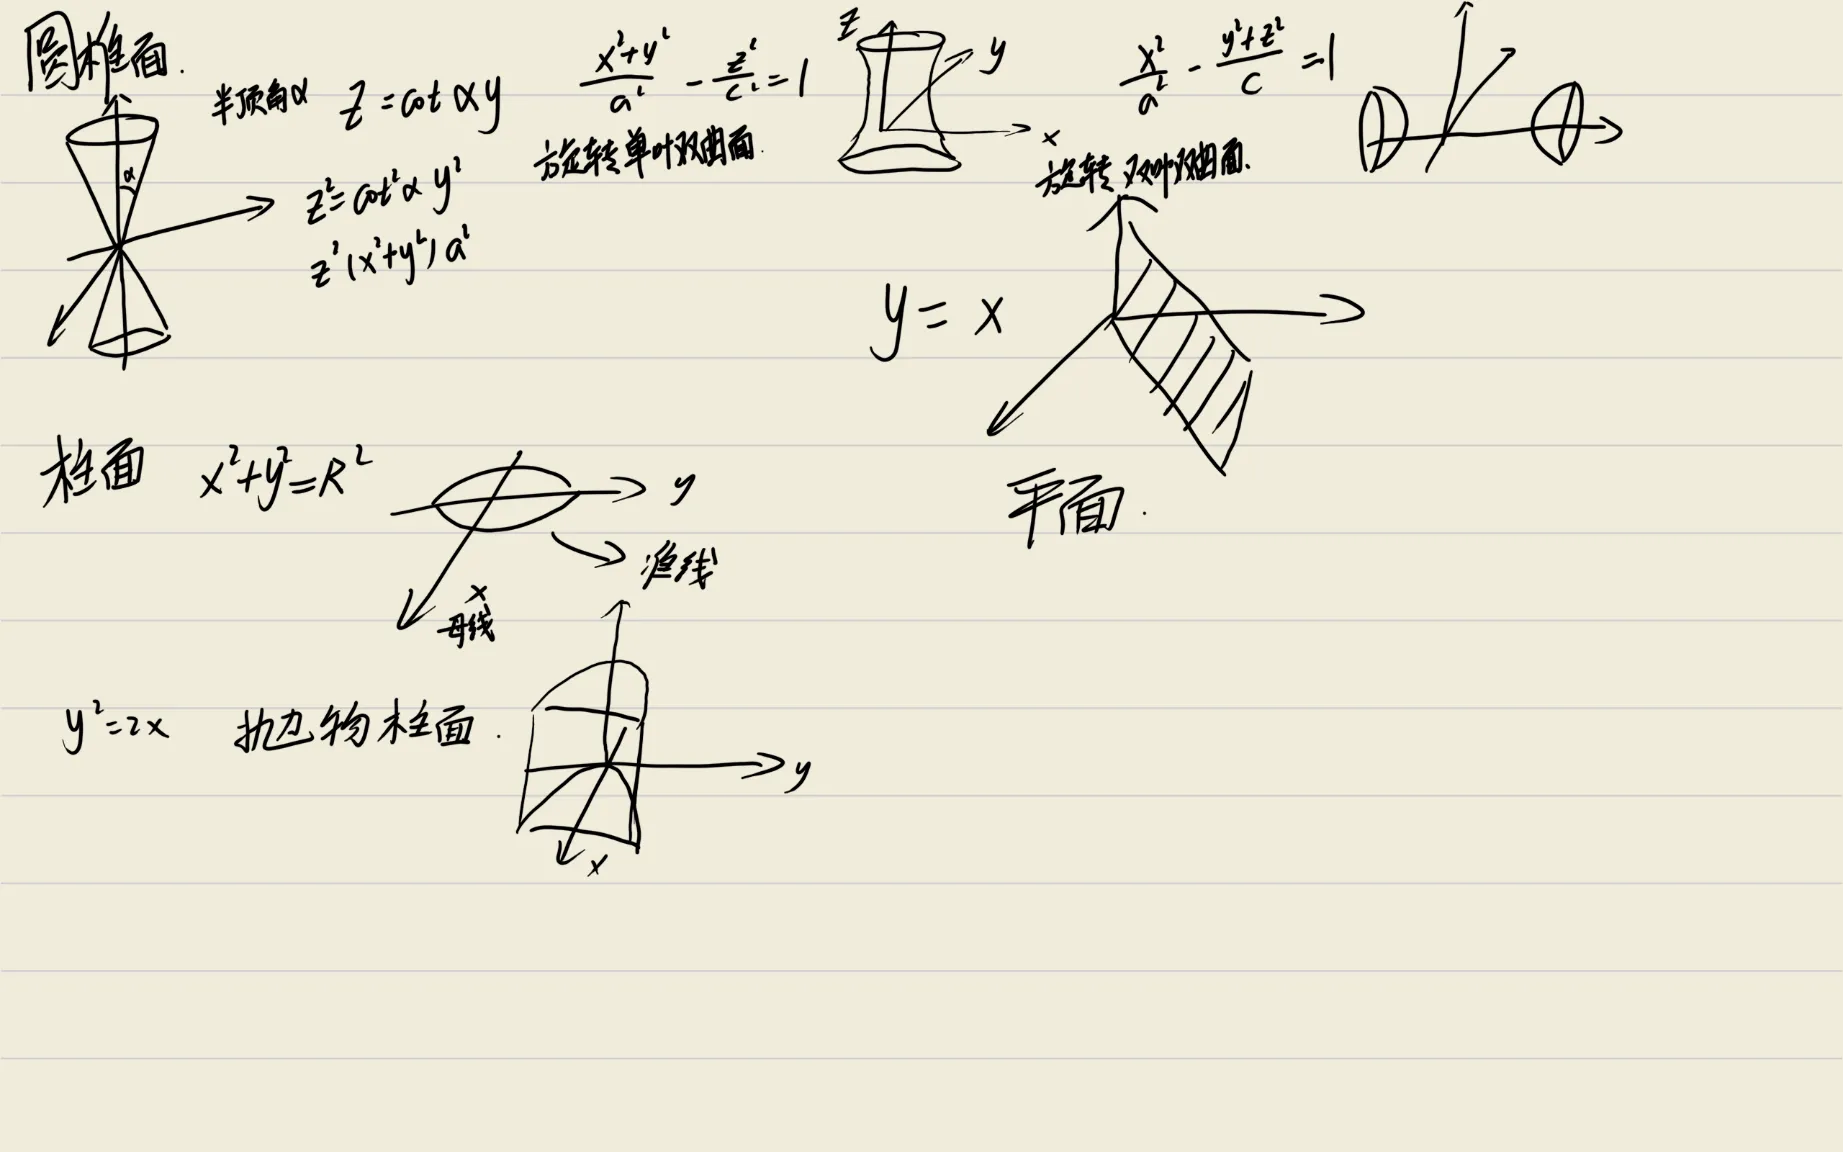 圆椎面.
半顶角α z = cot α y
α
z² = cot² α y²
z² (x²+y²) a²
(x²+y²)/a² - z²/c² = 1
旋转单叶双曲面.
z
y
x
x²/a² - (y²+z²)/c = 1
旋转双叶双曲面.
y = x
平面.
柱面 x²+y²=R²
y
准线
x
母线
y²=2x 抛物柱面.
y
x